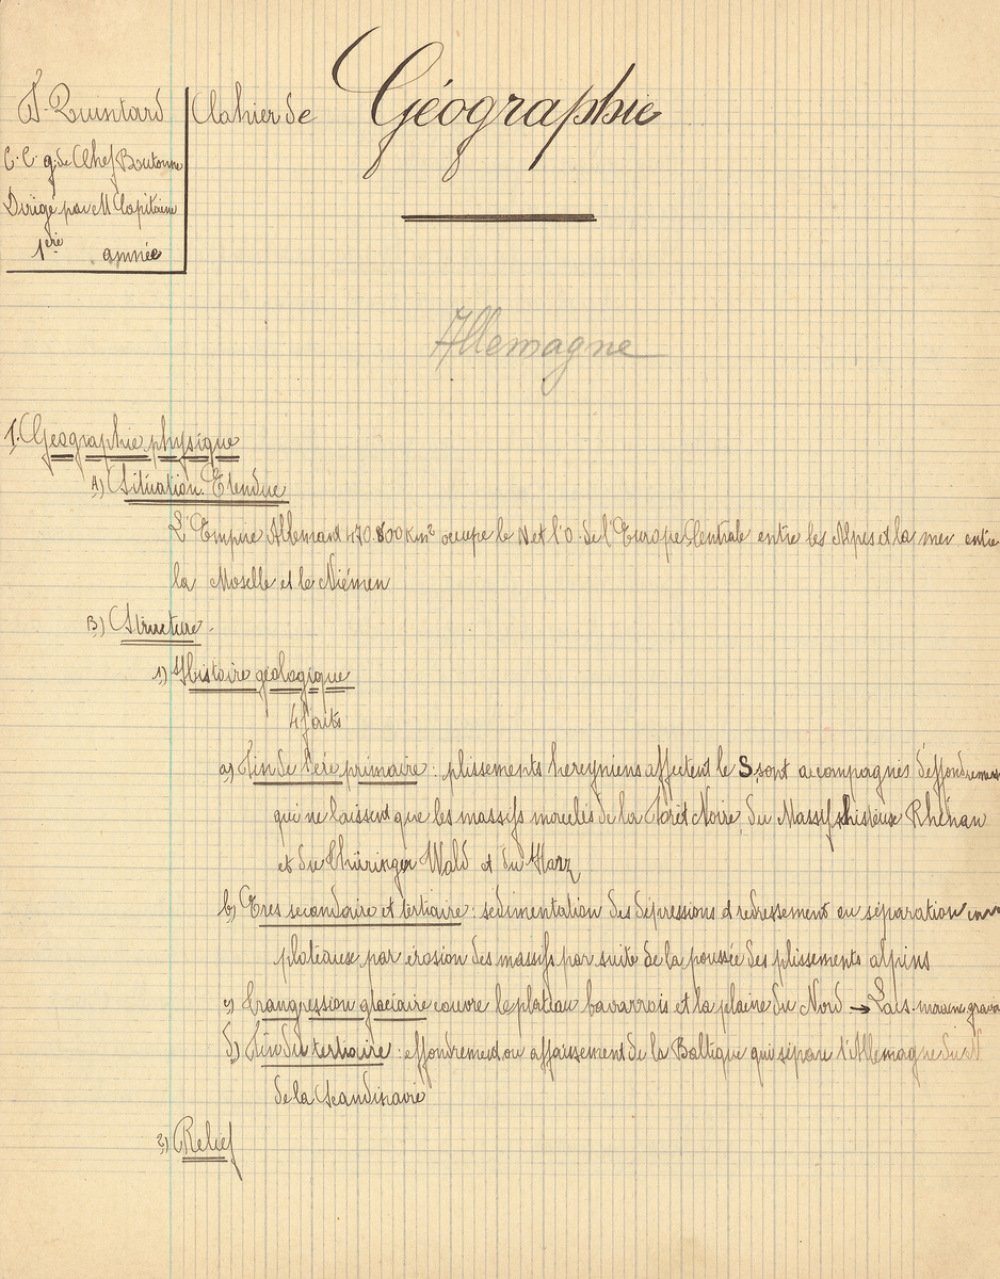 F. Quintard
C. C. g. de Chef Boutonne
Dirigé par M Capitaine
1ère année
Cahier de Géographie
Allemagne
I. Géographie physique
A) Situation. Etendue
L'Empire Allemand 470.800 Km² occupe le N et l'O. de l'Europe Centrale entre les Alpes et la mer entre
la Moselle et le Niémen
B) Structure.
1) Histoire géologique
4 faits
a) Fin de l'ère primaire : plissements hercyniens affectent le S, sont accompagnés d'effondrements
qui ne laissent que les massifs morcelés de la Forêt Noire, du Massif schisteux Rhénan
et du Thüringer Wald et du Harz
b) Eres secondaire et tertiaire : sédimentation des dépressions et redressement ou séparation en
plateaux par érosion des massifs par suite de la poussée des plissements alpins
c) Trangression glaciaire couvre le plateau bavarrois et la plaine du Nord → Lacs. moraines
d) Fin du tertiaire : effondrement ou affaissement de la Baltique qui sépare l'Allemagne du N
de la Scandinavie
2) Relief